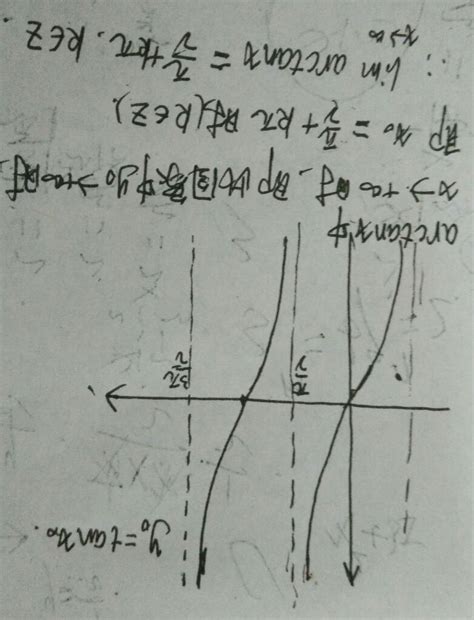 y₀=tanx₀.
π/2
3π/2
arctanx中
x→+∞时. 即此图象中y₀→+∞时.
即 x₀ = π/2 + kπ 时(k∈Z).
∴ lim arctanx = π/2 + kπ. k∈Z
x→∞